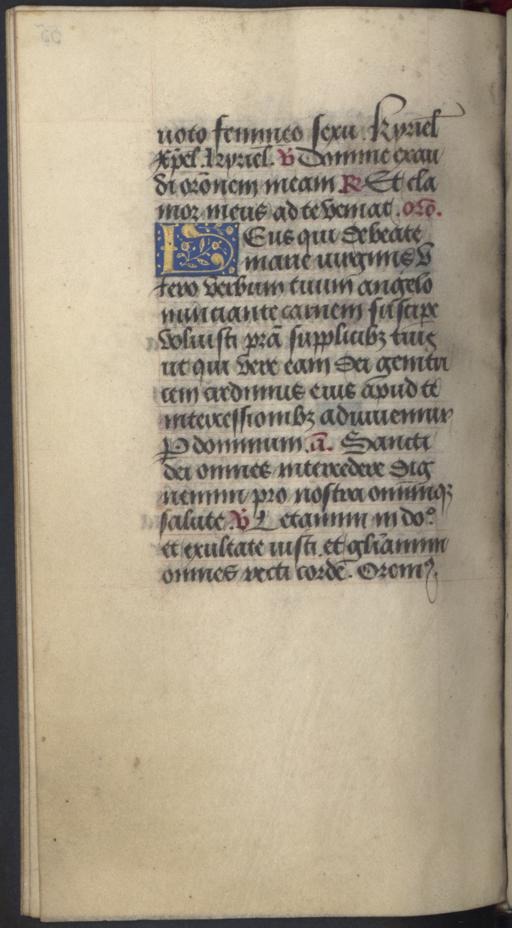 uoto femineo sexu. Kyriel̄
xp̄el. kyriel̄. v̄ Domine exau
di orōnem meam R Et cla
mor meus ad te veniat. orō.
DEus qui de beate
marie virginis v
tero verbum tuum angelo
nunciante carnem suscipe
voluisti prā supplicibꝫ tuis
ut qui vere eam dei genitri
cem credimus eius apud te
intercessionibꝫ adiuuemur
P dominum. ā. Sancti
dei omnes intercedere dig
nemini pro nostra omniumqꝫ
salute. v̄ Letamini in do⁹
et exultate iusti. et gl̄iamini
omnes recti corde. Orem⁹.